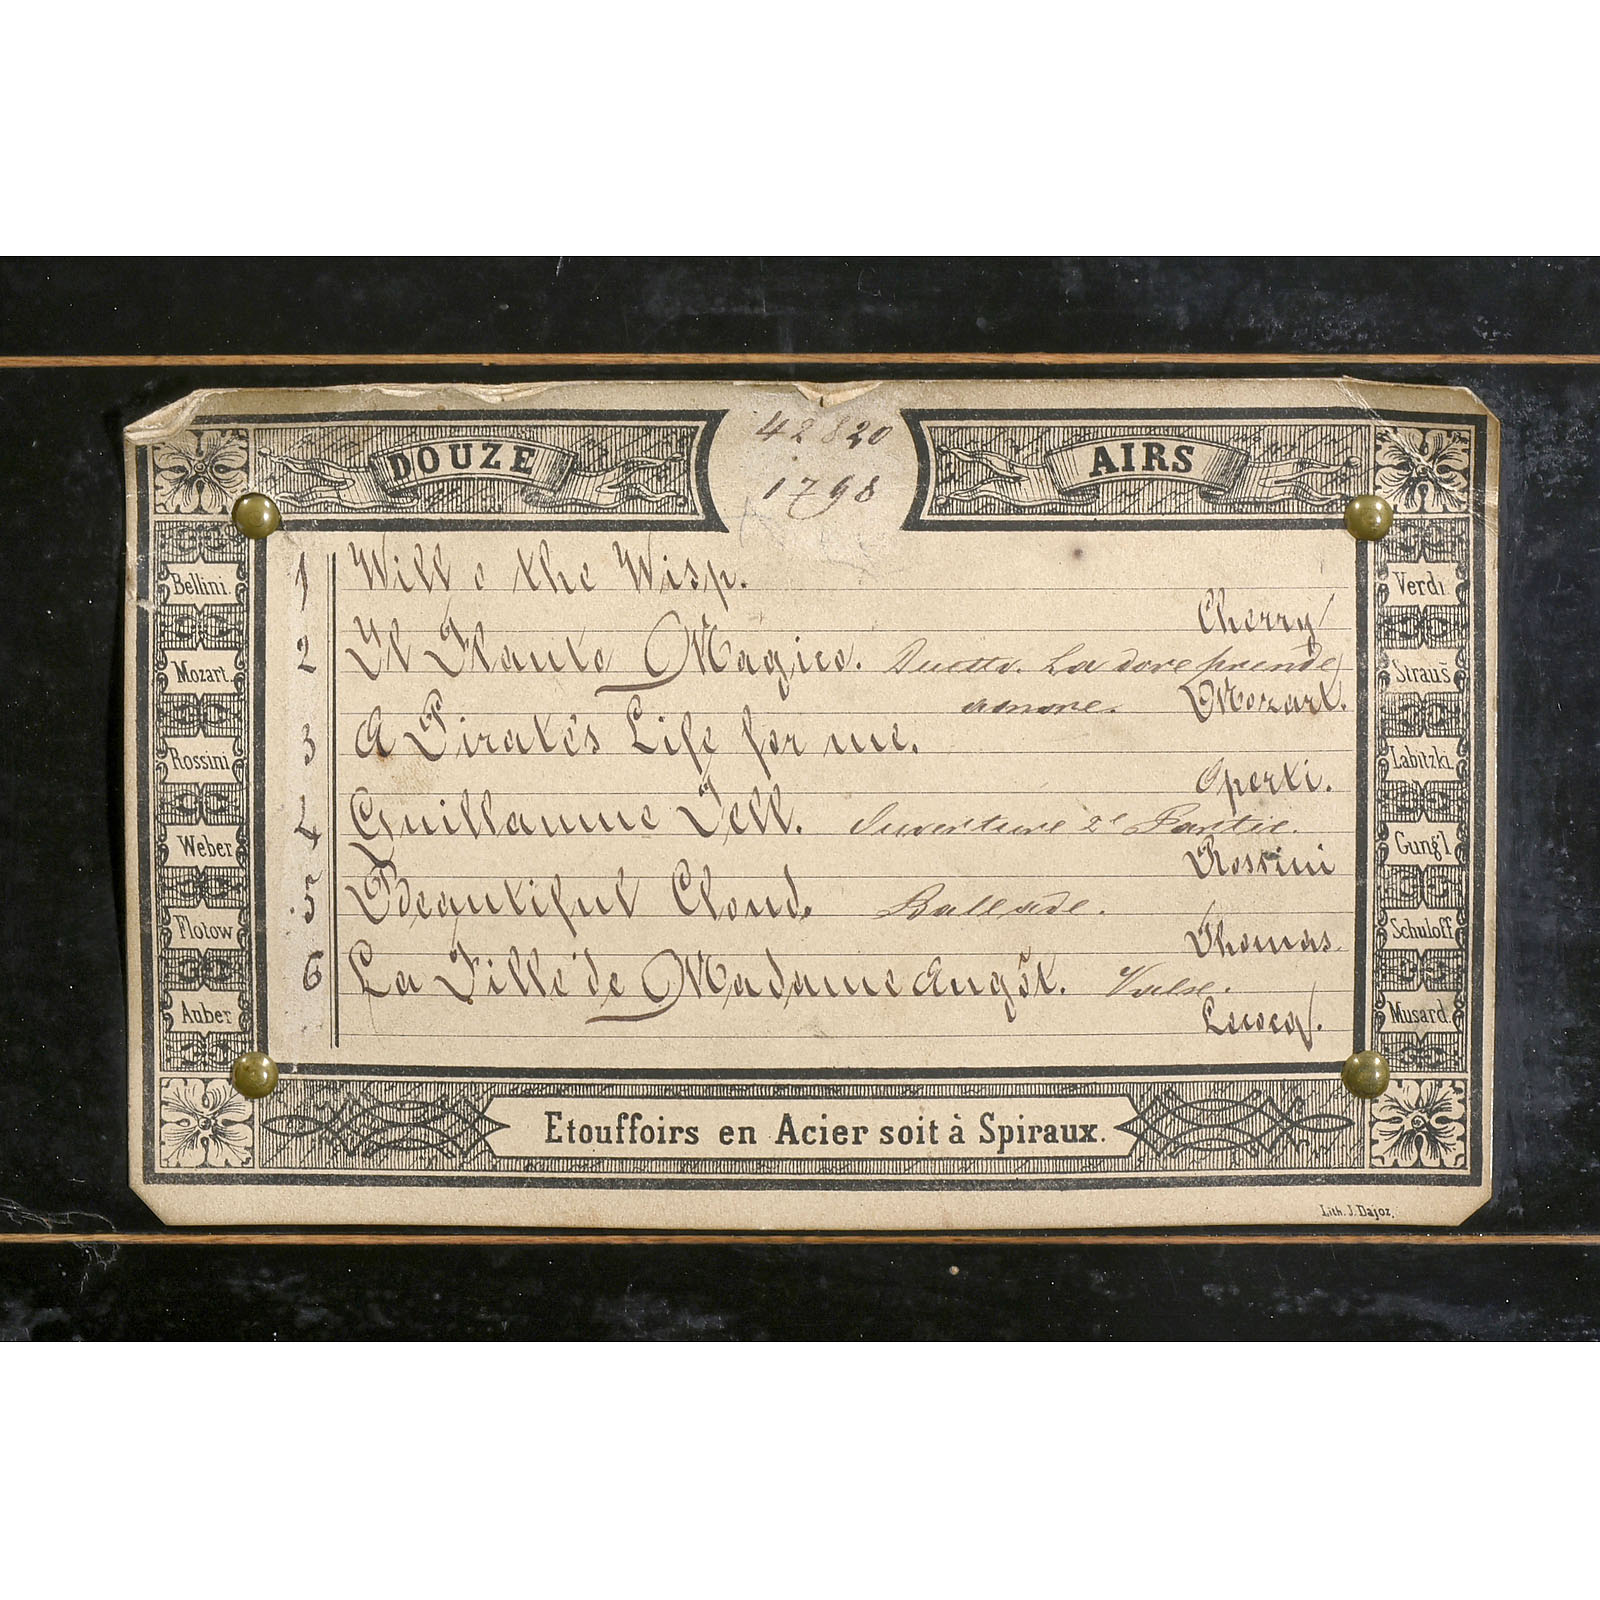 DOUZE AIRS
42820
1798
1 Will o the Wisp.
Cherry
2 Il Flauto Magico. Duetto. La dove prende
amore. Mozart.
3 A Pirate's Life for me.
Operti.
4 Guillaume Tell. Ouverture 2e Partie.
Rossini
5 Beautiful Cloud. Ballade.
Thomas
6 La Fille de Madame Angot. Valse.
Lecocq.
Bellini.
Mozart.
Rossini
Weber
Flotow
Auber
Verdi
Straus
Labitzki.
Gung'l
Schuloff
Musard.
Etouffoirs en Acier soit à Spiraux.
Lith. J. Dajoz.